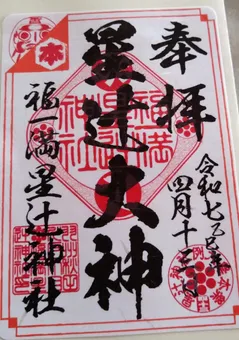 奉拝
令和七乙巳年
四月十三日
星辻大神
福一満星辻神社
本